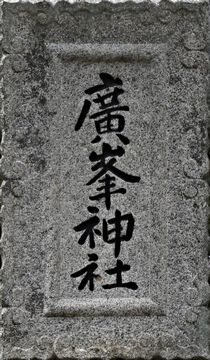 廣峯神社